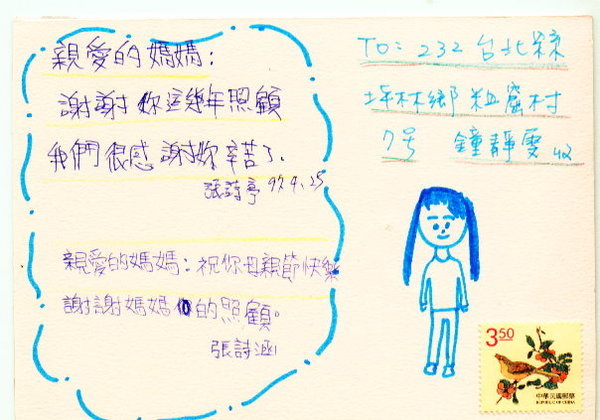 親愛的媽媽:
謝謝妳這幾年照顧
我們很感謝妳辛苦了、
張詩亭 97.4.25
親愛的媽媽:祝你母親節快樂
謝謝媽媽的照顧。
張詩涵
TO: 232 台北縣
坪林鄉粗窟村
7号 鐘靜雯 收
3.50
中華民國郵票
REPUBLIC OF CHINA